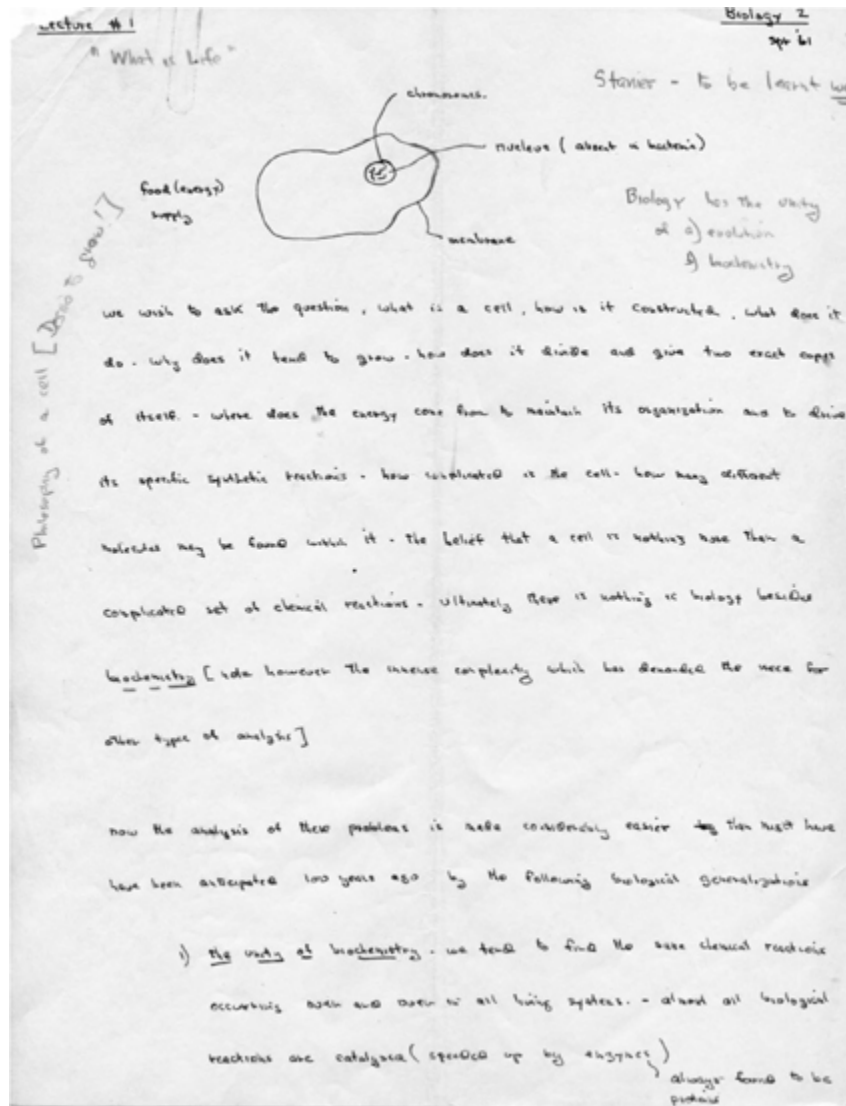 Lecture #1
Biology 2
Spr '61
"What is Life"
Stanier - to be learnt
chromosomes.
nucleus (absent in bacteria)
food (energy)
supply
membrane
Biology has the unity
of a) evolution
b) biochemistry
Philosophy of a cell [Desire to grow!]
we wish to ask the question, what is a cell, how is it constructed, what does it
do - why does it tend to grow - how does it divide and give two exact copys
of itself. - where does the energy come from to maintain its organization and to drive
its specific synthetic reactions - how complicated is the cell - how many different
molecules may be found within it - The belief that a cell is nothing more than a
complicated set of chemical reactions - Ultimately there is nothing in biology besides
biochemistry [note however the immense complexity which has demanded the need for
other types of analysis]
now the analysis of these problems is made considerably easier than might have
have been anticipated 100 years ago by the following biological generalizations
1) the unity of biochemistry - we tend to find the same chemical reactions
occurring over and over in all living systems. - almost all biological
reactions are catalyzed (speeded up by enzymes)
always found to be
proteins